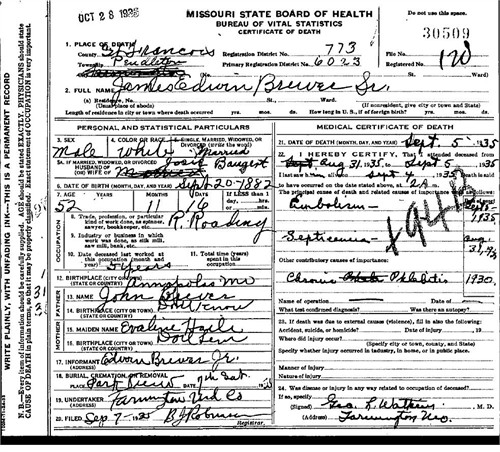 OCT 28 1935
MISSOURI STATE BOARD OF HEALTH
BUREAU OF VITAL STATISTICS
CERTIFICATE OF DEATH
Do not use this space.
30509
1. PLACE OF DEATH
County St Francois
Registration District No. 773
File No.
Township Pendleton
Primary Registration District No. 6023
Registered No. 120
2. FULL NAME James Edwin Brewer Sr.
(a) Residence, No. St. Ward.
(Usual place of abode) (If nonresident, give city or town and State)
Length of residence in city or town where death occurred yrs. mos. ds. How long in U. S., if of foreign birth? yrs. mos. ds.
PERSONAL AND STATISTICAL PARTICULARS
3. SEX
4. COLOR OR RACE
5. SINGLE, MARRIED, WIDOWED, OR DIVORCED (write the word)
Male White Married
5A. IF MARRIED, WIDOWED, OR DIVORCED
HUSBAND OF
(OR) WIFE OF
6. DATE OF BIRTH (MONTH, DAY, AND YEAR) Sept 20-1882
7. AGE YEARS MONTHS DAYS If LESS than 1 day, hrs. or min.
52 16
OCCUPATION
8. Trade, profession, or particular kind of work done, as spinner, sawyer, bookkeeper, etc.
9. Industry or business in which work was done, as silk mill, saw mill, bank, etc.
10. Date deceased last worked at this occupation (month and year)
11. Total time (years) spent in this occupation
12. BIRTHPLACE (CITY OR TOWN) Annapolis Mo
(STATE OR COUNTRY)
FATHER
13. NAME John Brewer
14. BIRTHPLACE (CITY OR TOWN) Dont Know
(STATE OR COUNTRY)
MOTHER
15. MAIDEN NAME Evaline
16. BIRTHPLACE (CITY OR TOWN)
(STATE OR COUNTRY)
17. INFORMANT Edwin Brewer Jr.
(ADDRESS)
18. BURIAL, CREMATION, OR REMOVAL
PLACE Park View DATE
19. UNDERTAKER Farmington Und Co
(ADDRESS)
20. FILED Sep 7-1935 B J Robinson
Registrar.
MEDICAL CERTIFICATE OF DEATH
21. DATE OF DEATH (MONTH, DAY, AND YEAR) Sept 5 1935
22. I HEREBY CERTIFY, That I attended deceased from
Aug 31 1935 to Sept 5 1935
I last saw him alive on Sept 4 1935 death is said
to have occurred on the date stated above, at
The principal cause of death and related causes of importance were as follows:
Embolism
1935
Septicemia
Aug
Other contributory causes of importance:
Chronic Phlebitis 1930.
Name of operation Date of
What test confirmed diagnosis? Was there an autopsy?
23. If death was due to external causes (violence), fill in also the following:
Accident, suicide, or homicide? Date of injury , 19
Where did injury occur?
(Specify city or town, county, and State)
Specify whether injury occurred in industry, in home, or in public place.
Manner of injury
Nature of injury
24. Was disease or injury in any way related to occupation of deceased?
If so, specify
(Signed) Geo. L Watkins, M. D.
(Address) Farmington Mo.
WRITE PLAINLY, WITH UNFADING INK—THIS IS A PERMANENT RECORD
N. B.—Every item of information should be carefully supplied. AGE should be stated EXACTLY. PHYSICIANS should state
CAUSE OF DEATH in plain terms, so that it may be properly classified. Exact statement of OCCUPATION is very important.